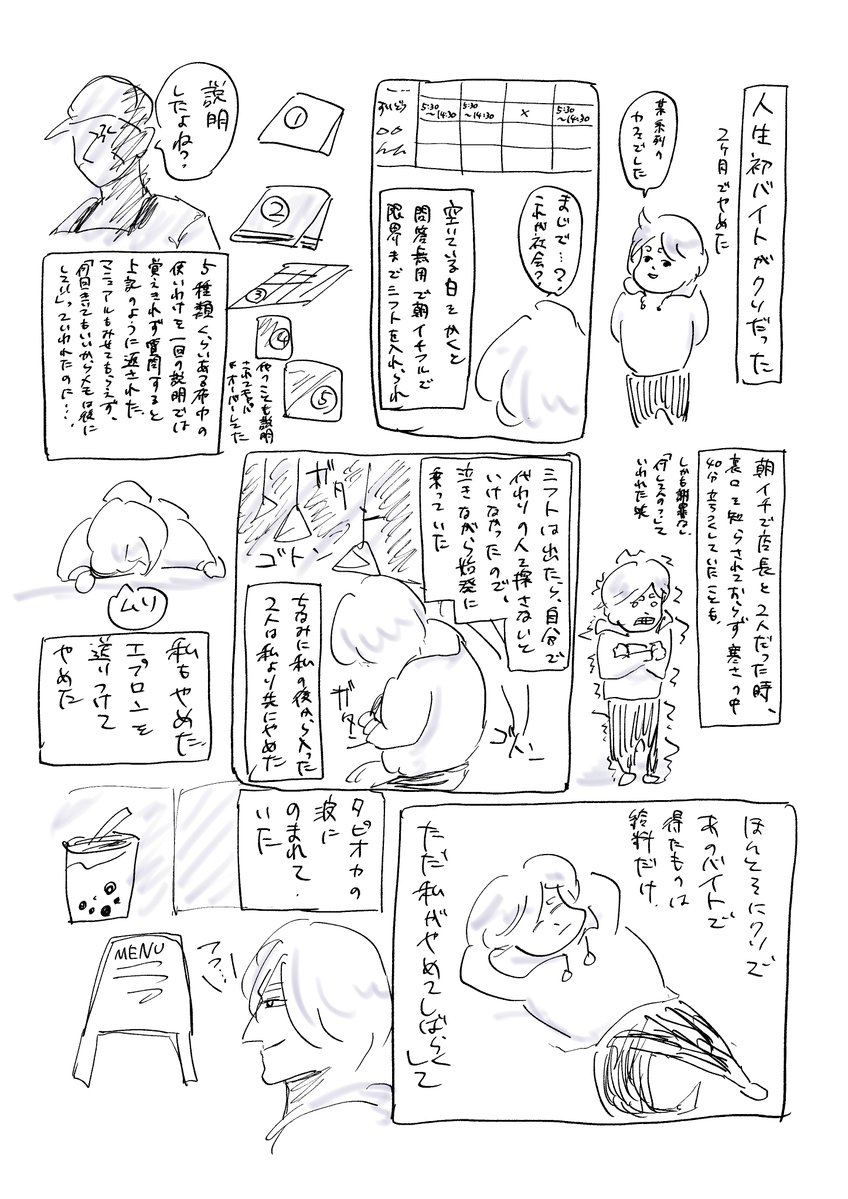 人生初バイトがクソだった
2ヶ月でやめた
某系列の
カフェでした
すいどう
5:30
〜14:30
5:30
〜14:30
×
5:30
〜14:30
まじで…?
これが社会?
空いている日でかくと
問答無用で朝イチフルで
限界までシフトを入れられ
①
②
③
④
⑤
説明
したよね?
5種類くらいある布巾の
使いわけを一回の説明では
覚えきれず質問すると
上記のように返された
マニュアルもみせてもらえず、
「何回きいてもいいからメモは後に
して!」っていわれたのに…、
他のことも説明
されてキャパ
オーバーしてた
朝イチで店長と2人だった時、
裏口で知らされておらず寒さの中
40分立ちつくしていたことも、
しかも謝罪なし
「何してんの?」って
いわれた
シフトは出たら、自分で
代わりの人を探さないと
いけなかったので、
泣きながら始発に
乗っていた
ガタ
ゴトン
ガタン
ゴトン
ちなみに私の後から入った
2人は私より先にやめた
ムリ
私もやめた
エプロンを
送りつけて
やめた
ほんとにクソで
あのバイトで
得たものは
給料だけ
ただ私がやめてしばらくして
タピオカの
波に
のまれて
いた
MENU
フッ…!